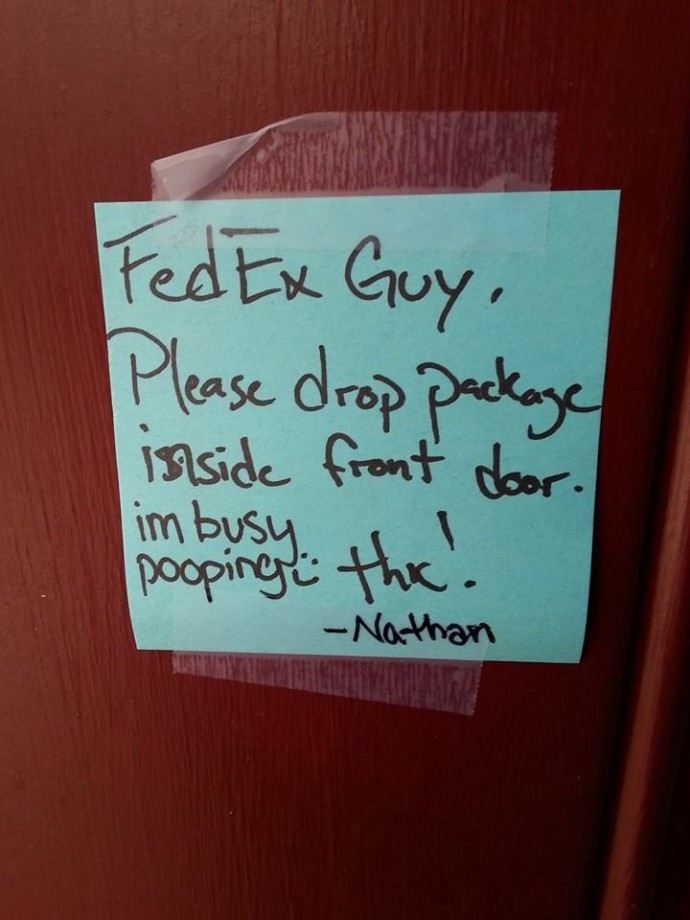 FedEx Guy.
Please drop package
inside front door.
im busy
pooping :) thx!
-Nathan